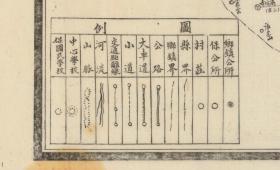 圖例
鄉鎮公所
保公所
村莊
縣界
鄉鎮界
公路
大車道
小道
河流
山脈
中心學校
保國民學校